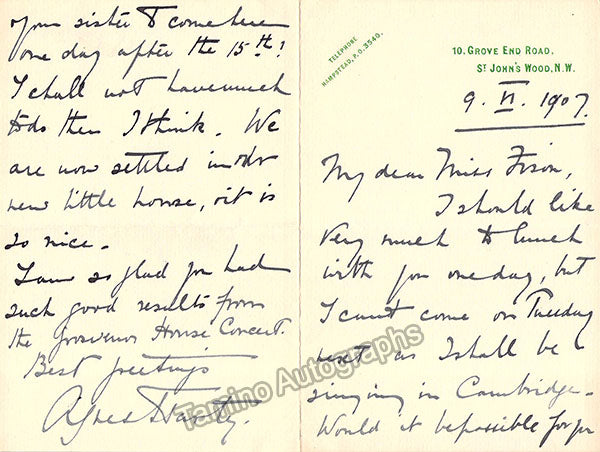 TELEPHONE
HAMPSTEAD, P.O. 3540.
10. GROVE END ROAD,
ST JOHN'S WOOD, N.W.
9. VI. 1907.
My dear Miss Fison,
I should like
very much to lunch
with you one day, but
I can't come on Tuesday
next as I shall be
singing in Cambridge.
Would it be possible for you
your sister to come here
one day after the 15th?
I shall not have much
to do then I think. We
are now settled in our
new little house, & it is
so nice.
I am so glad you had
such good results from
the Grosvenor House Concert.
Best greetings
Agnes
Tamino Autographs